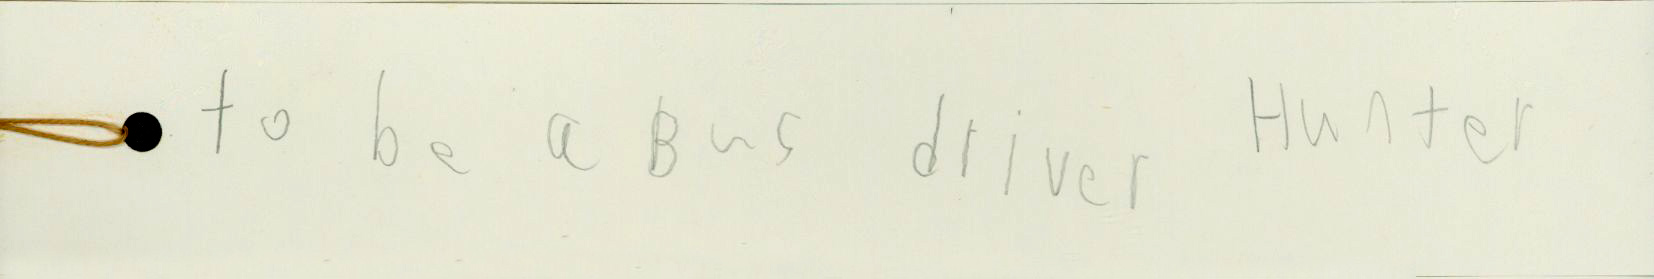 to be a Bus driver Hunter